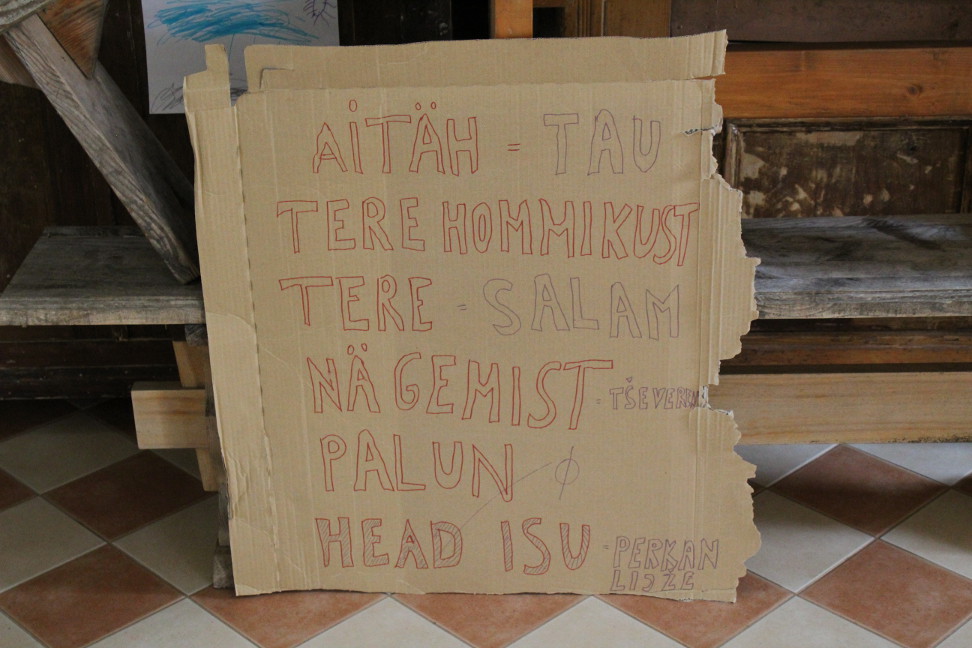 AITÄH = TAU
TERE HOMMIKUST
TERE = SALAM
NÄGEMIST =
PALUN ∅
HEAD ISU = PERKAN
LIDZE